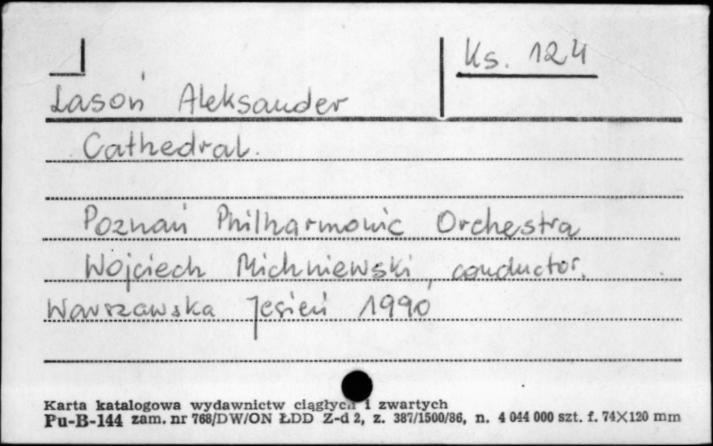 Ks. 124
Lasoń Aleksander
Cathedral.
Poznań Philharmonic Orchestra
Wojciech Michniewski, conductor.
Warszawska Jesień 1990
Karta katalogowa wydawnictw ciągłych i zwartych
Pu-B-144 zam. nr 768/DW/ON ŁDD Z-d 2, z. 387/1500/86, n. 4 044 000 szt. f. 74×120 mm